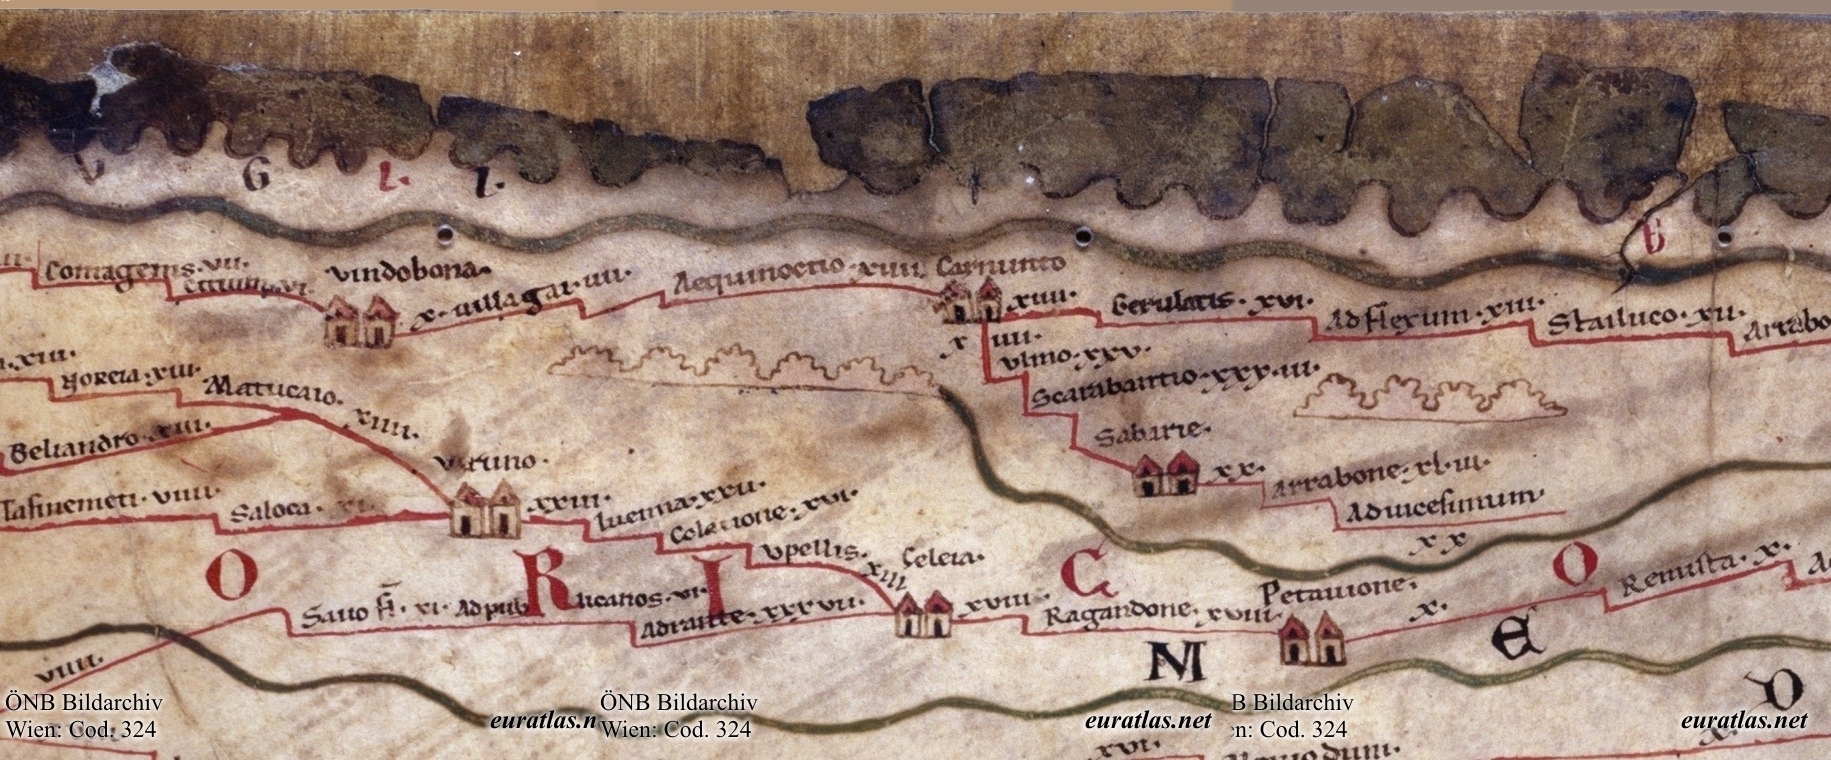 G L I.
G
Comagenis. VII.
Citium. VI.
Vindobona.
X. villagai. IIII.
Aequinoctio. XIIII.
Carnunto
XIIII.
Gerulatis. XVI.
Ad flexum. XIII.
Stailuco. XII.
Arrabo
X IIII.
Vlmo. XXV.
Scarabantio. XXXIII.
Sabarie.
XX.
Arrabone. XLIII.
Advicesimum
XX
XIII.
Noreia. XIII.
Matucaio.
XIIII.
Beliandro. XIII.
Tasinemeti. VIIII.
Saloca. XI.
Varuno.
XXIII.
Iuenna. XXII.
Colatione. XVI.
Vpellis.
XIII
Celeia.
O R I C O
Savo fl. XI. Adpub licanos. VI.
Adrante. XXXVII.
XVIII.
Ragandone. XVIII.
Petavione.
X.
Remista. X.
VIIII.
M E D
XVI.
ÖNB Bildarchiv
Wien: Cod. 324
euratlas.n
ÖNB Bildarchiv
Wien: Cod. 324
euratlas.net
B Bildarchiv
n: Cod. 324
euratlas.net